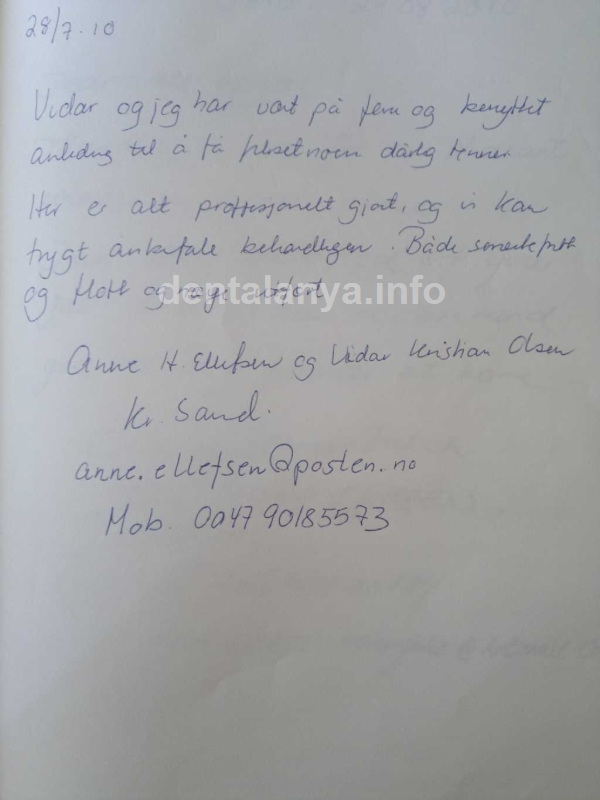 28/7.10
Vidar og jeg har vært på ferie og benyttet
anledning til å få fikset noen dårlig tenner.
Her er alt proffesjonelt gjort, og vi kan
trygt anbefale behandlingen. Både smertefritt
og flott og utført
dentalanya.info
Anne H. Ellefsen og Vidar Kristian Olsen
Kr. Sand.
anne.ellefsen@posten.no
Mob. 0047 90185573